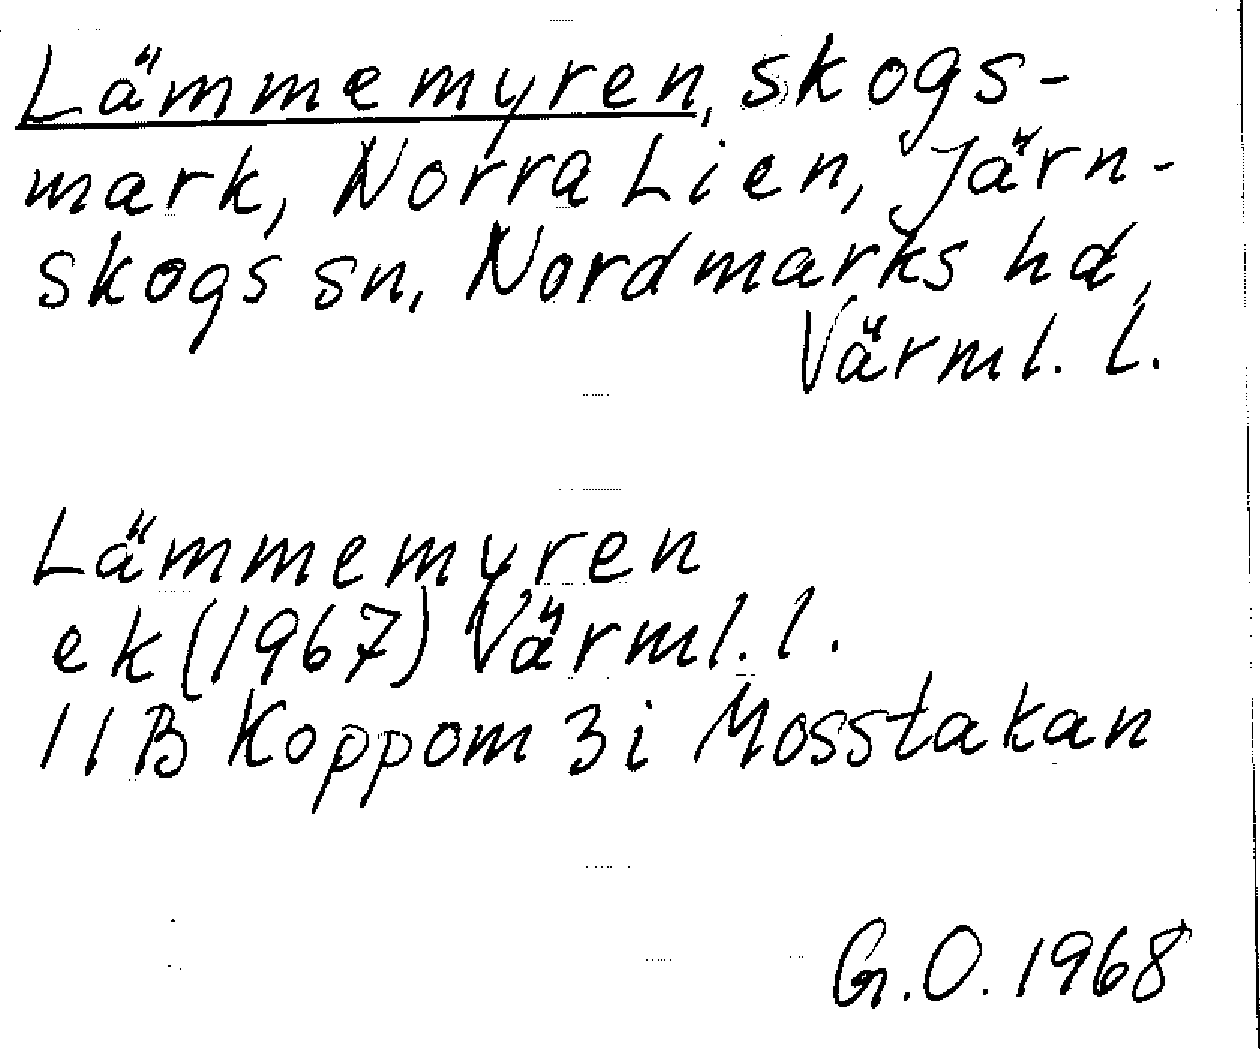 Lämmemyren, skogs-
mark, Norra Lien, Järn-
skogs sn, Nordmarks hd,
Värml. l.
Lämmemyren
ek (1967) Värml. l.
11B Koppom 3i Mosstakan
G.O. 1968